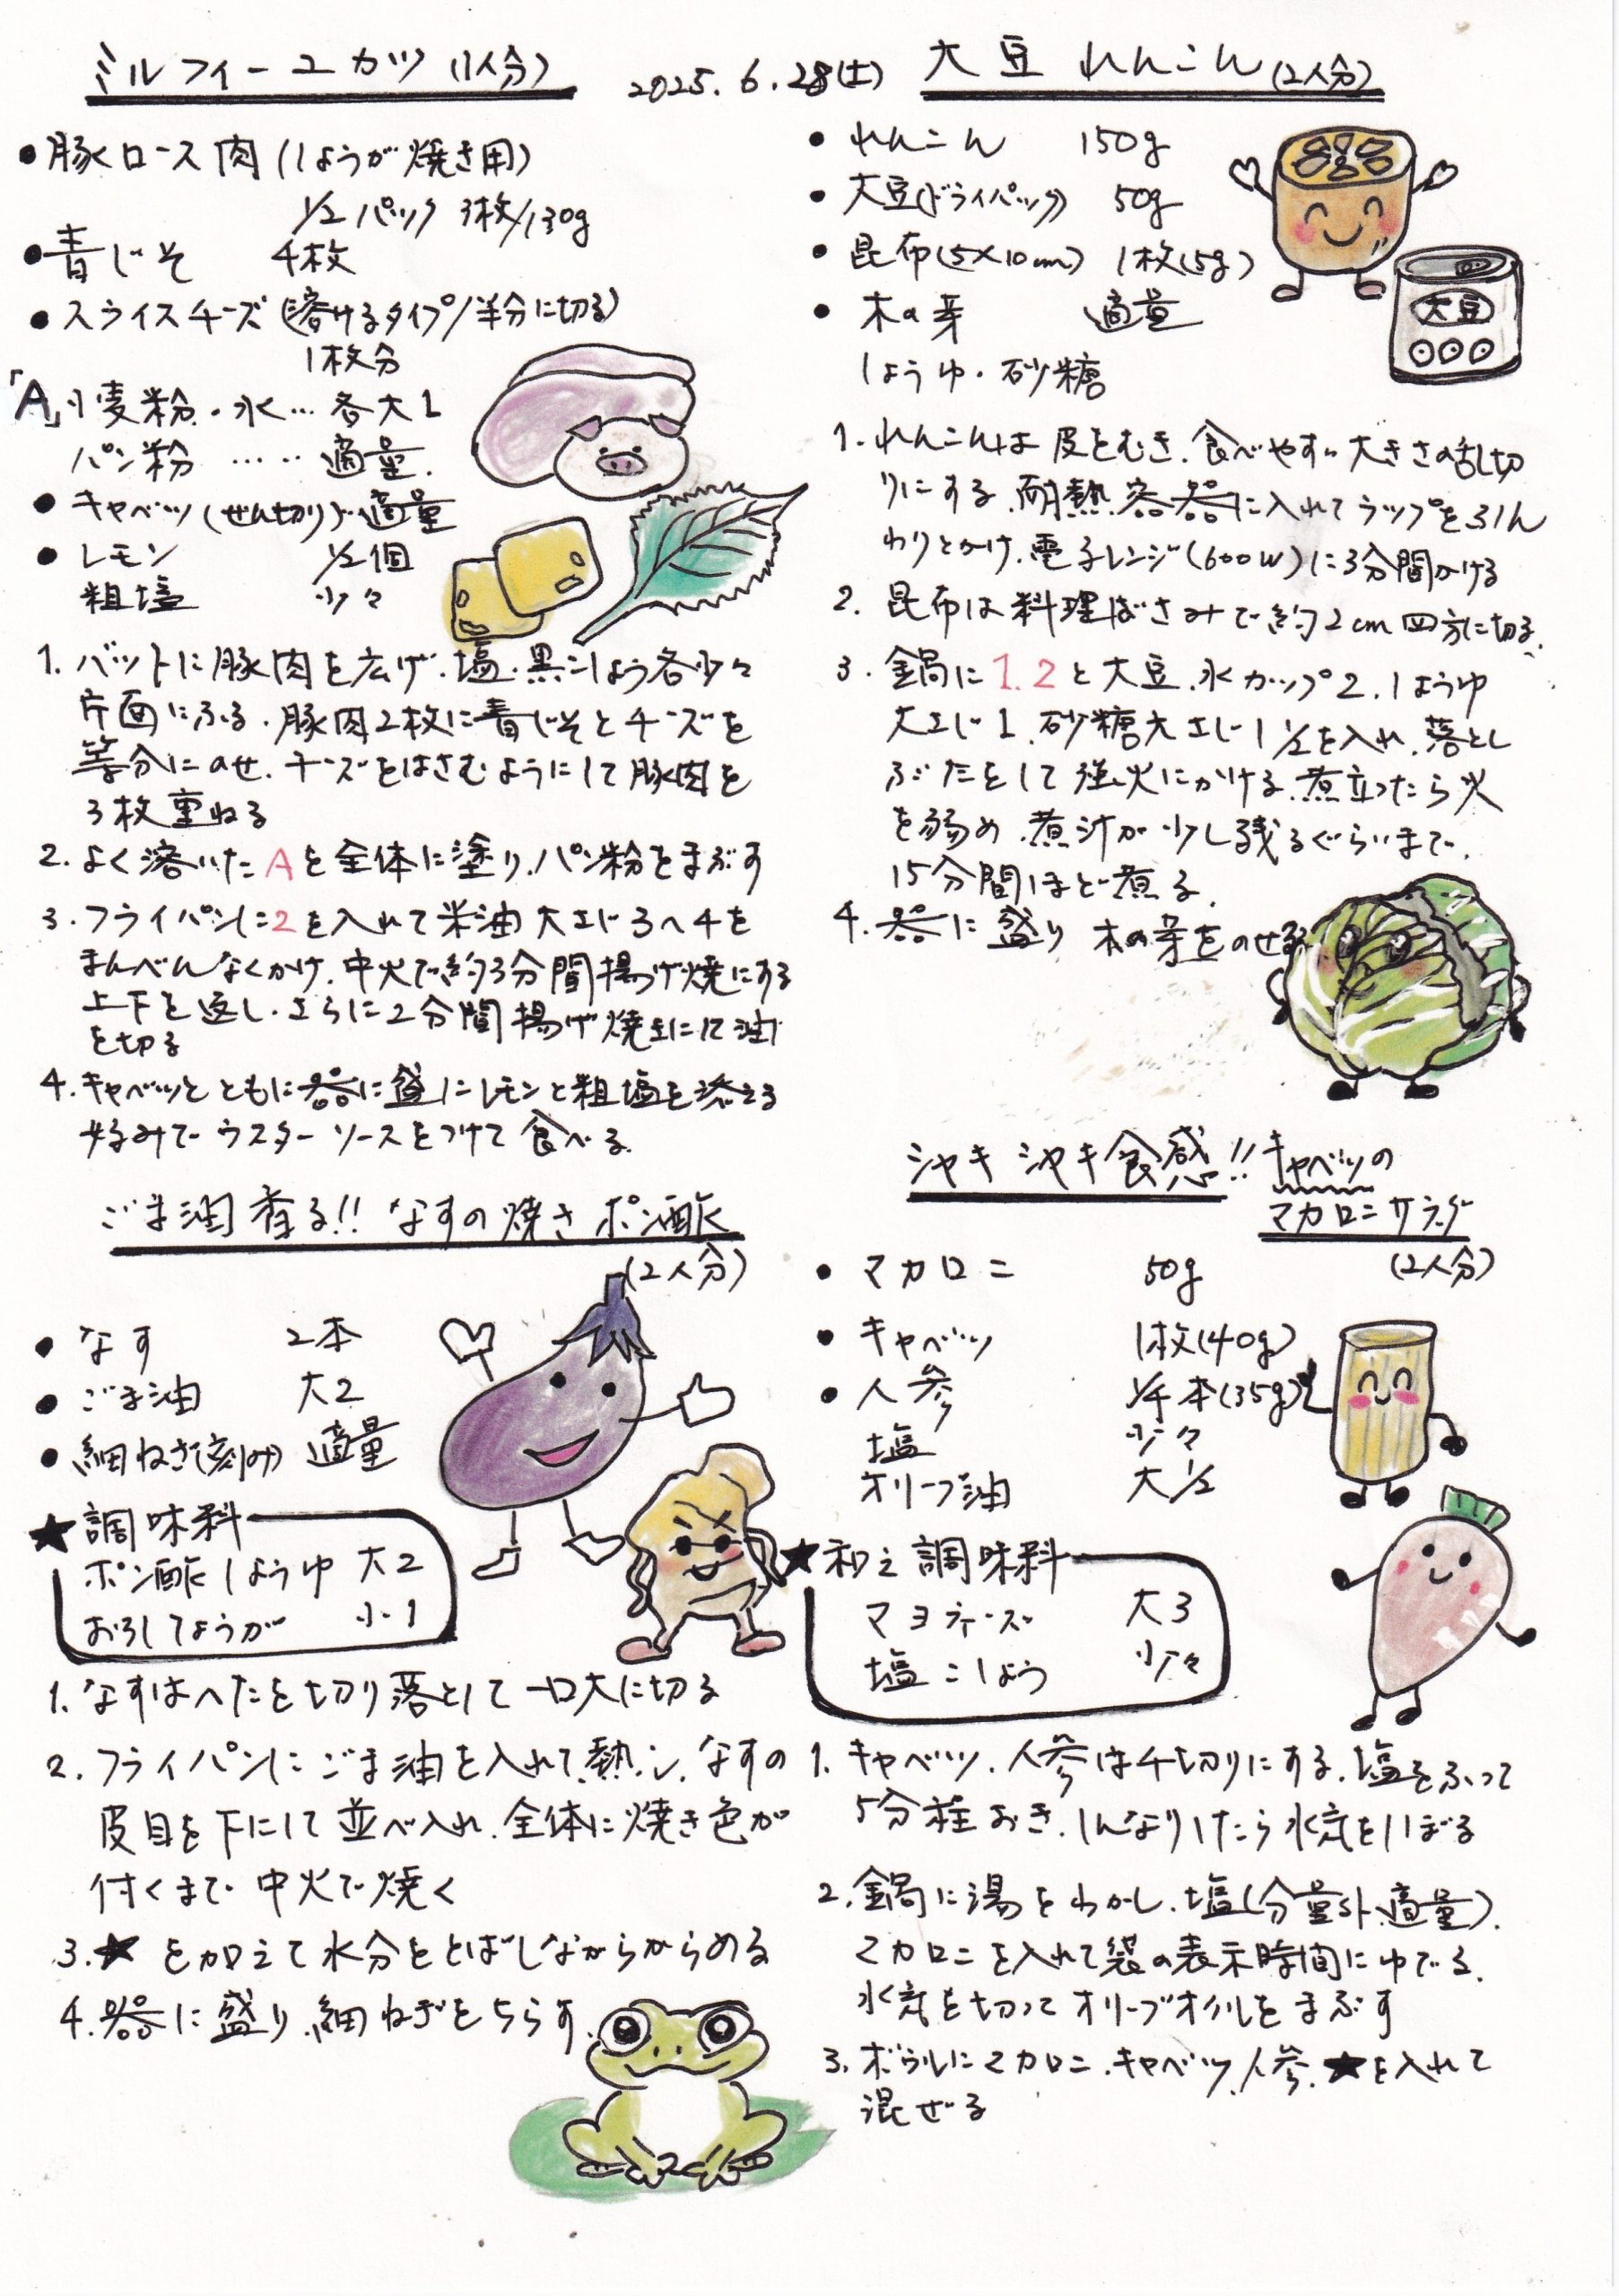 ミルフィーユカツ(1人分)
2025.6.28(土)
•豚ロース肉(しょうが焼き用)
1/2パック 3枚/130g
•青じそ 4枚
•スライスチーズ(溶けるタイプ/半分に切る)
1枚分
「A」小麦粉・水…各大1
パン粉 ‥‥ 適量.
•キャベツ(せん切り)・適量
•レモン 1/2個
粗塩 少々
1.バットに豚肉を広げ.塩.黒こしょう各少々
片面にふる.豚肉2枚に青じそとチーズを
等分にのせ.チーズをはさむようにして豚肉を
3枚重ねる
2.よく溶いたAを全体に塗り.パン粉をまぶす
3.フライパンに2を入れて米油大さじ3〜4を
まんべんなくかけ.中火で約3分間揚げ焼にする
上下を返し.さらに2分間揚げ焼きにして油
を切る
4.キャベツとともに器に盛にレモンと粗塩を添える
好みでウスターソースをつけて食べる.
大豆れんこん(2人分)
•れんこん 150g
•大豆(ドライパック) 50g
•昆布(5×10cm) 1枚(5g)
•木の芽 適量
しょうゆ・砂糖
大豆
1.れんこんは皮をむき.食べやすい大きさの乱切
りにする.耐熱容器に入れてラップをふん
わりとかけ.電子レンジ(600W)に3分間かける
2.昆布は料理ばさみで約2cm四方に切る.
3.鍋に1.2と大豆.水カップ2.しょうゆ
大さじ1.砂糖大さじ1 1/2を入れ.落とし
ぶたをして強火にかける.煮立ったら火
を弱め.煮汁が少し残るぐらいまで.
15分間ほど煮る.
4.器に盛り 木の芽をのせる
ごま油香る!!なすの焼きポン酢
(2人分)
•なす 2本
•ごま油 大2
•細ねぎ(刻み) 適量
★調味料
ポン酢しょうゆ 大2
おろししょうが 小1
1.なすはへたを切り落として一口大に切る
2.フライパンにごま油を入れて.熱し.なすの
皮目を下にして並べ入れ.全体に焼き色が
付くまで中火で焼く
3.★を加えて水分をとばしながらからめる
4.器に盛り.細ねぎをちらす.
シャキシャキ食感!!キャベツの
マカロニサラダ
(2人分)
•マカロニ 50g
•キャベツ 1枚(40g)
•人参 1/4本(35g)
塩 少々
オリーブ油 大1/2
★和え調味料
マヨネーズ 大3
塩こしょう 少々
1.キャベツ.人参は千切りにする.塩をふって
5分程おき.しんなりしたら水気をしぼる
2.鍋に湯をわかし.塩(分量外.適量).
マカロニを入れて袋の表示時間にゆでる.
水気を切ってオリーブオイルをまぶす
3.ボウルにマカロニ.キャベツ.人参.★を入れて
混ぜる